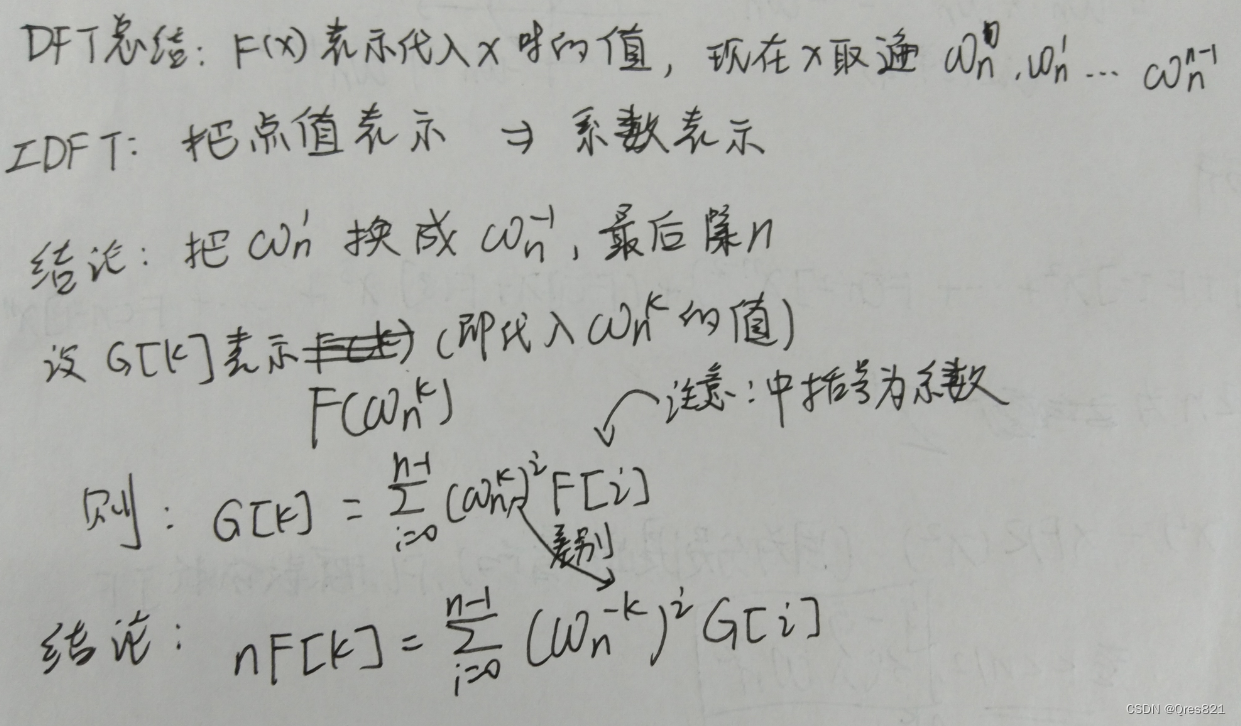 DFT总结: F(x)表示代入x时的值, 现在x取遍 ω_n^0, ω_n^1 ... ω_n^{n-1}
IDFT: 把点值表示 ⇒ 系数表示
结论: 把 ω_n^1 换成 ω_n^{-1}, 最后除n
设 G[k]表示 (即代入 ω_n^k 的值)
F(ω_n^k)
注意: 中括号为系数
则: G[k] = ∑_{i=0}^{n-1} (ω_n^k)^i F[i]
差别
结论: nF[k] = ∑_{i=0}^{n-1} (ω_n^{-k})^i G[i]
CSDN @Qres821